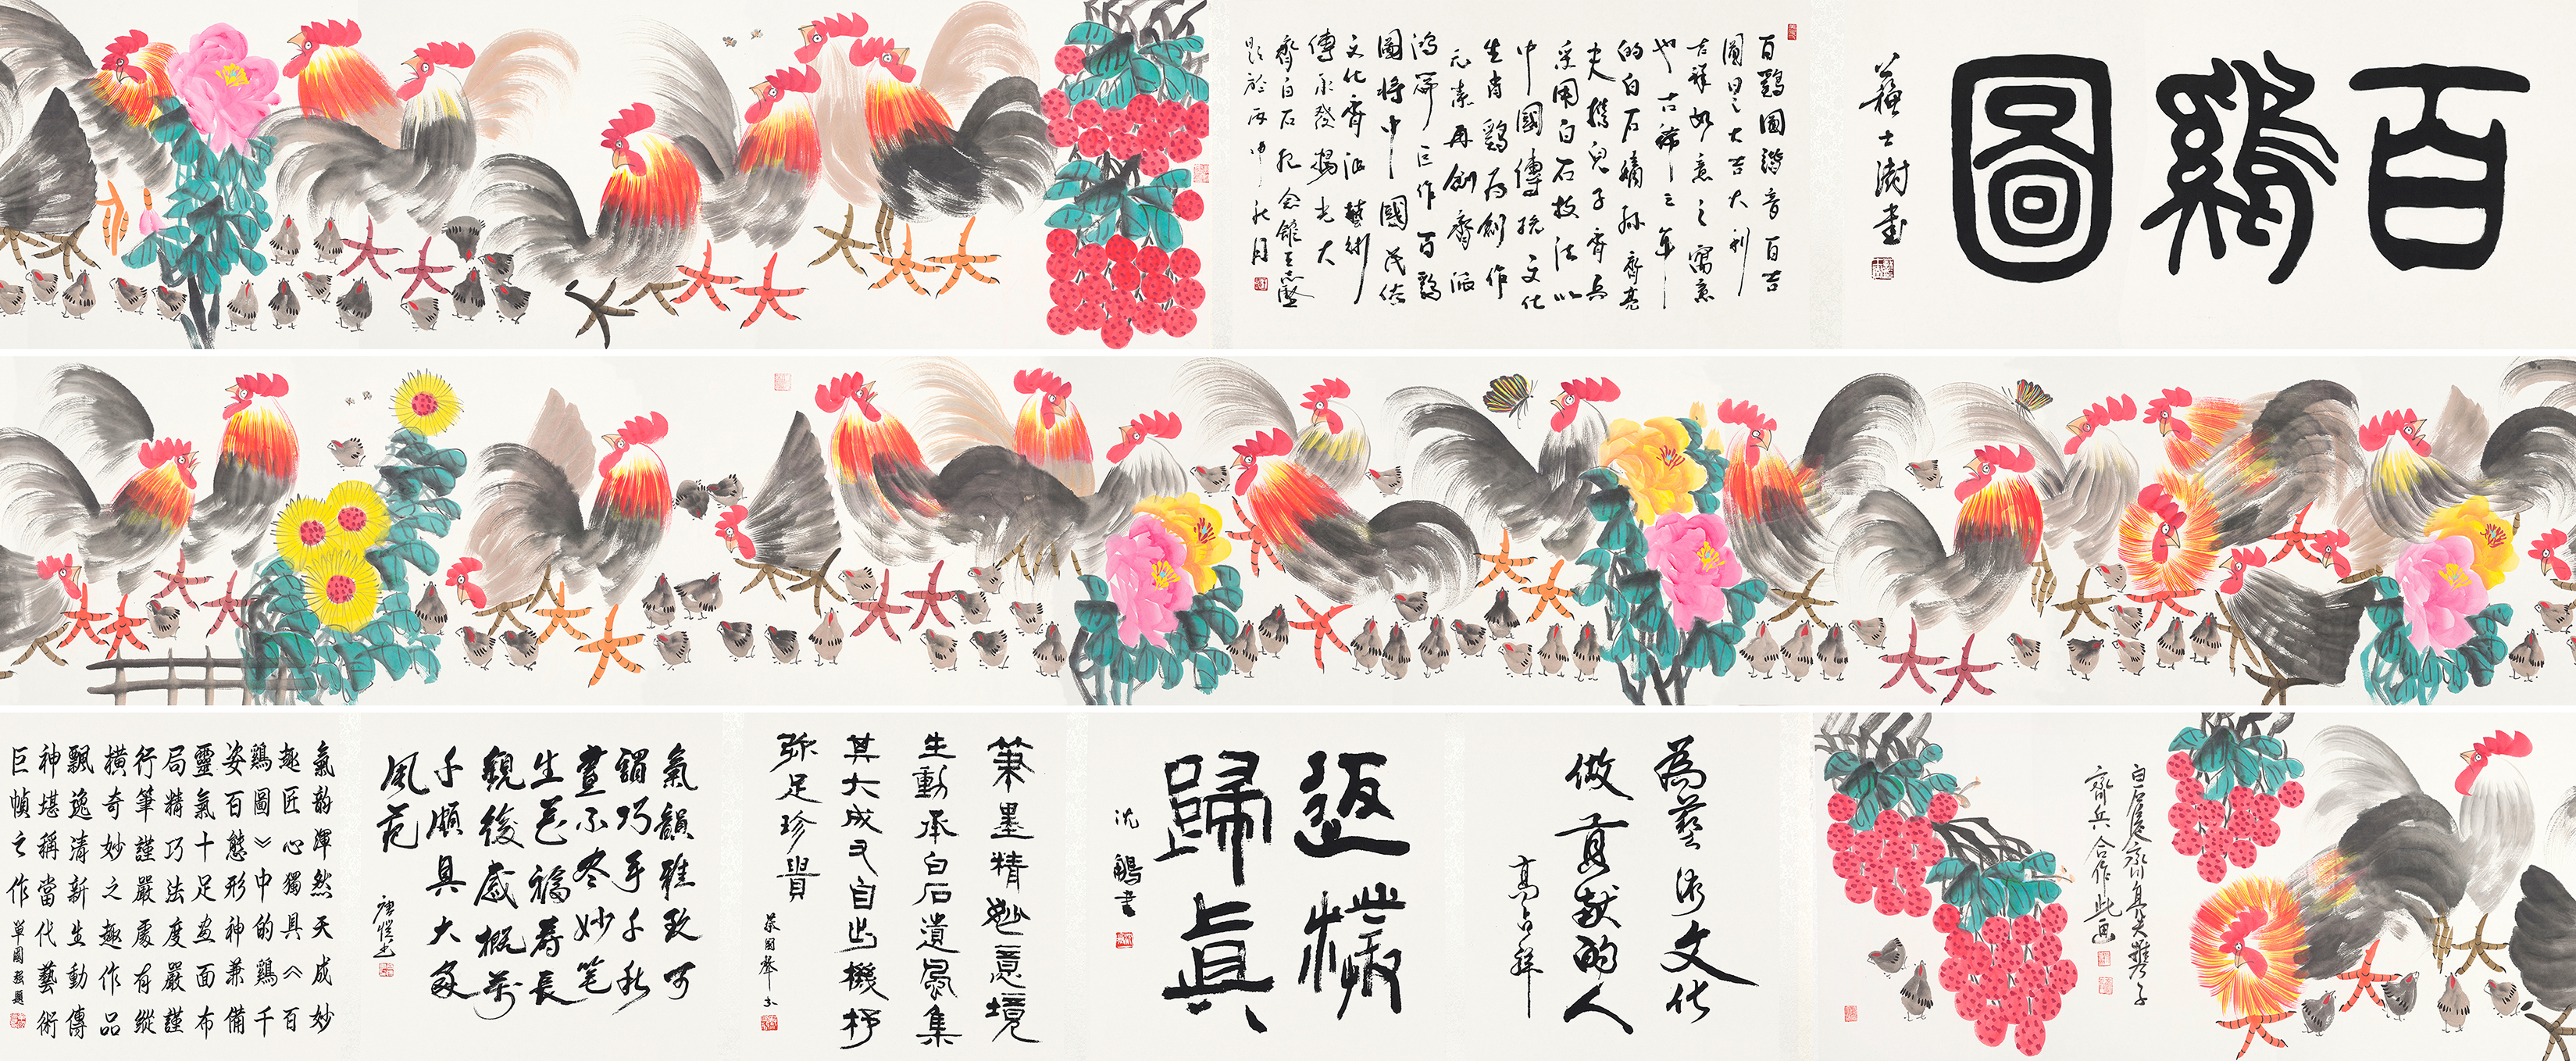 百鷄圖
蘇士澍書
百鷄圖諧音百吉
圖曰之大吉大利
吉祥如意之寓意
也古稀之年
的白石嫡孫齊亮
夫携兒子齊兵
采用白石技法以
中國傳統文化
生肖鷄为創作
元素再創齊派
鴻篇巨作百鷄
圖將中國民俗
文化齊派藝術
傳承發揚光大
齊白石紀念館王志堅
題於丙申秋月
白石屋裔亮夫攜子
齊兵合作此画
為藝術文化
做貢献的人
高占祥
返樸
歸真
沈鵬書
筆墨精妙意境
生動承白石遺風集
其大成又自出機杼
弥足珍貴
蘇國聲书
氣韻雅致可
謂巧手千秋
畫不尽妙笔
生花福寿長
觀後感概万
千頗具大家
風范
唐愷书
氣韵渾然天成妙
趣匠心獨具《百
鷄圖》中的鷄千
姿百態形神兼備
靈氣十足画面布
局精巧法度嚴謹
行筆謹嚴處有縱
橫奇妙之趣作品
飄逸清新生動傳
神堪稱當代藝術
巨幀之作
單國强題